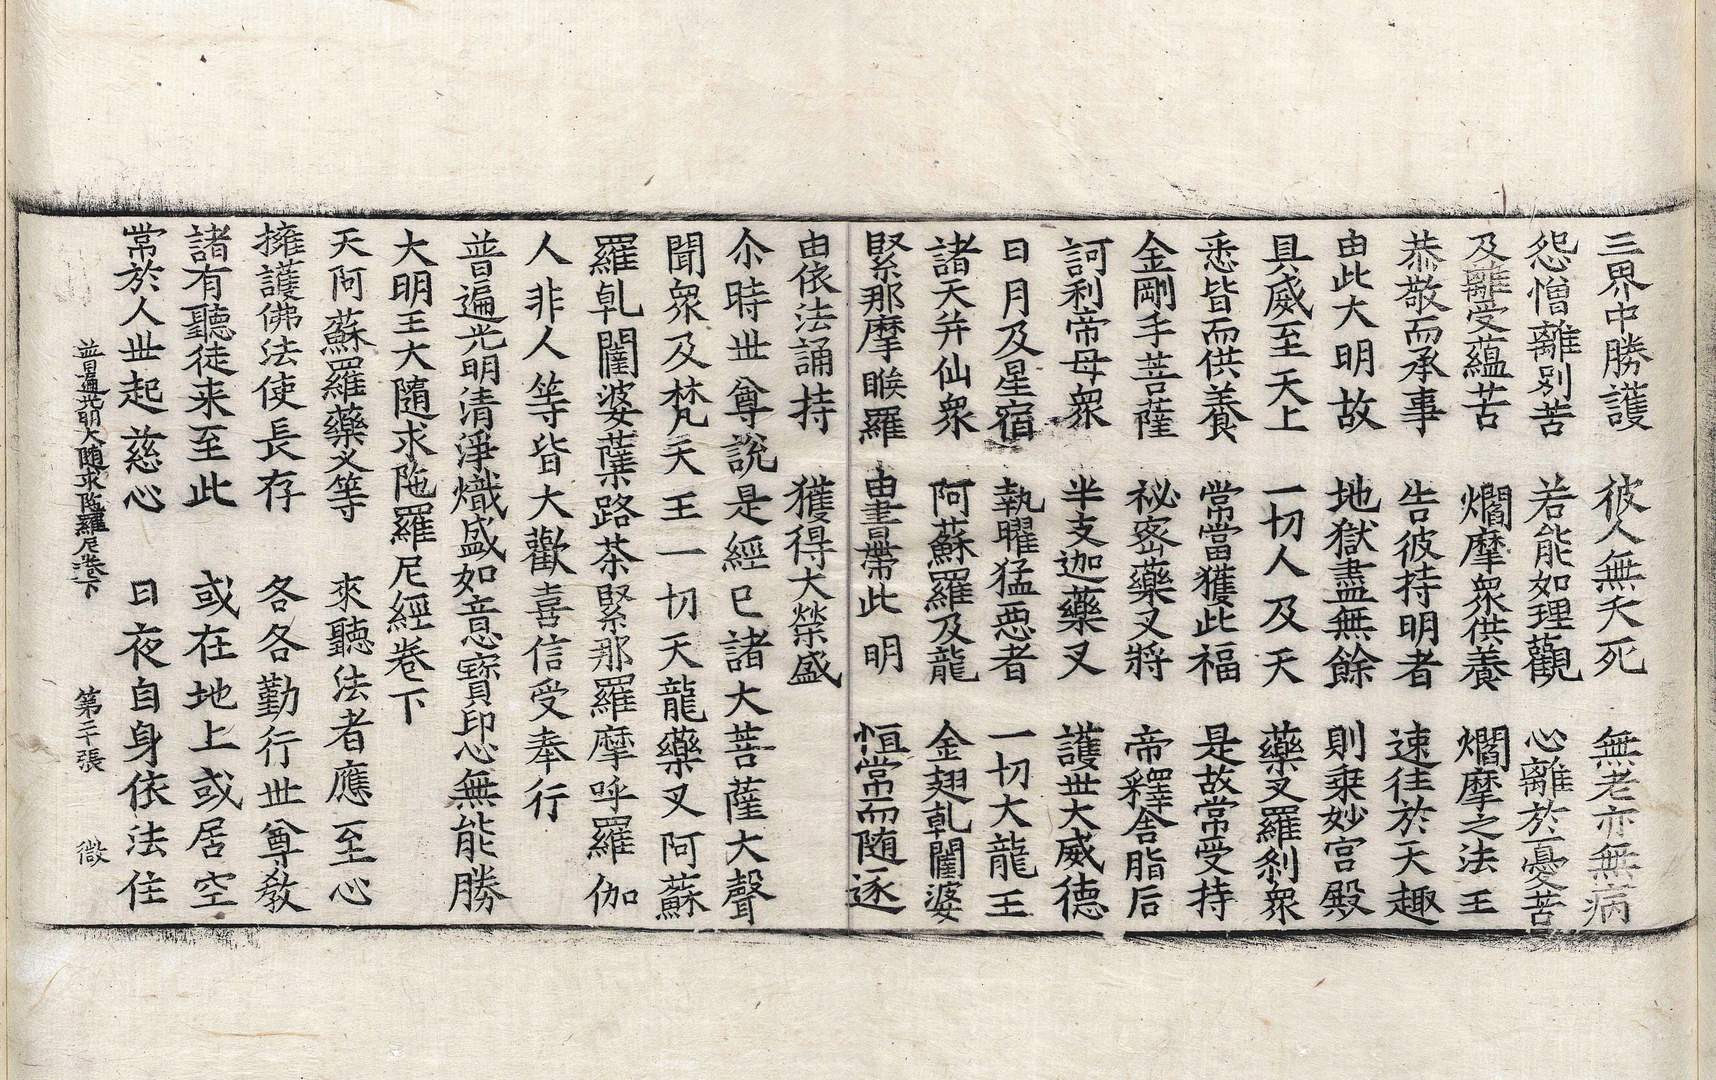 三界中勝護　彼人無夭死　無老亦無病
怨憎離別苦　若能如理觀　心離於憂苦
及離受蘊苦　爓摩衆供養　爓摩之法王
恭敬而承事　告彼持明者　速往於天趣
由此大明故　地獄盡無餘　則乗妙宮殿
具威至天上　一切人及天　藥叉羅刹衆
悉皆而供養　常當獲此福　是故常受持
金剛手菩薩　祕密藥叉將　帝釋舍脂后
訶利帝母衆　半支迦藥叉　護世大威德
日月及星宿　執曜猛恶者　一切大龍王
諸天并仙衆　阿蘇羅及龍　金翅乹闥婆
緊那摩睺羅　由書帶此明　恒常而隨逐
由依法誦持　獲得大榮盛
尒時世尊說是經已諸大菩薩大聲
聞衆及梵天王一切天龍藥叉阿蘇
羅乹闥婆薩㮏路茶緊那羅摩呼羅伽
人非人等皆大歡喜信受奉行
普遍光明清淨熾盛如意寳印心無能勝
大明王大隨求陁羅尼經卷下
天阿蘇羅藥叉等　來聽法者應至心
擁護佛法使長存　各各勤行世尊敎
諸有聽徒来至此　或在地上或居空
常於人世起慈心　日夜自身依法住
普遍光明大隨求陁羅尼卷下　第二十張　微